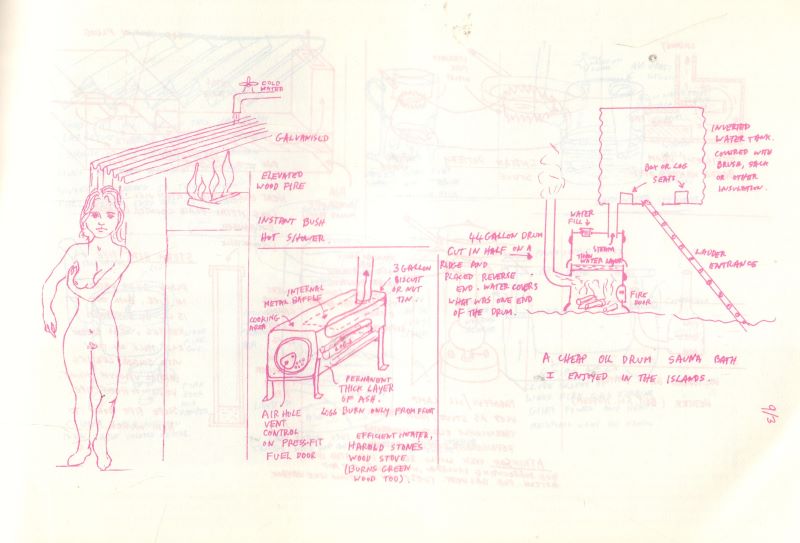 COLD
WATER
GALVANISED
ELEVATED
WOOD FIRE
INSTANT BUSH
HOT SHOWER.
INTERNAL
METAL BAFFLE
3 GALLON
BISCUIT
OR NUT
TIN.
COOKING
AREA
PERMANENT
THICK LAYER
OF ASH.
LOGS BURN ONLY FROM FRONT
AIR HOLE
VENT
CONTROL
ON PRESS-FIT
FUEL DOOR
EFFICIENT HEATER,
HAROLD STONE'S
WOOD STOVE
(BURNS GREEN
WOOD TOO).
INVERTED
WATER TANK.
COVERED WITH
BRUSH, SACK
OR OTHER
INSULATION.
BOX OR LOG
SEATS
WATER
FILL
STEAM
THIN
WATER LAYER
44 GALLON DRUM
CUT IN HALF ON A
RIDGE AND
PLACED REVERSE
END. WATER COVERS
WHAT WAS ONE END
OF THE DRUM.
FIRE
DOOR
LADDER
ENTRANCE
A CHEAP OIL DRUM SAUNA BATH
I ENJOYED IN THE ISLANDS.
9/3